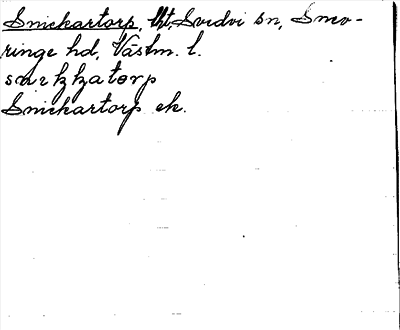 Snickartorp, lht, Svedvi sn, Snev-
ringe hd, Västm. l.
snɛkkatørp
Snickartorp ek.